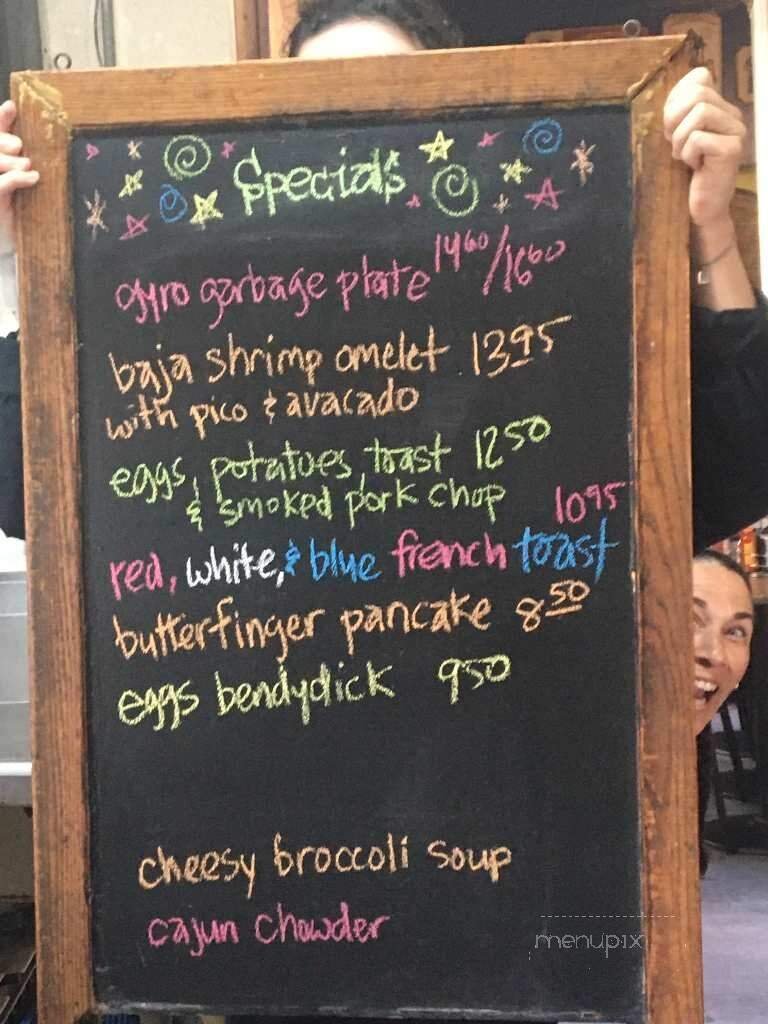 Specials
gyro garbage plate 14⁶⁰/16⁶⁰
baja shrimp omelet 13⁹⁵
with pico & avacado
eggs, potatoes, toast 12⁵⁰
& smoked pork chop
10⁹⁵
red, white, & blue french toast
butterfinger pancake 8⁵⁰
eggs bendydick 9⁵⁰
cheesy broccoli soup
cajun chowder
menupix